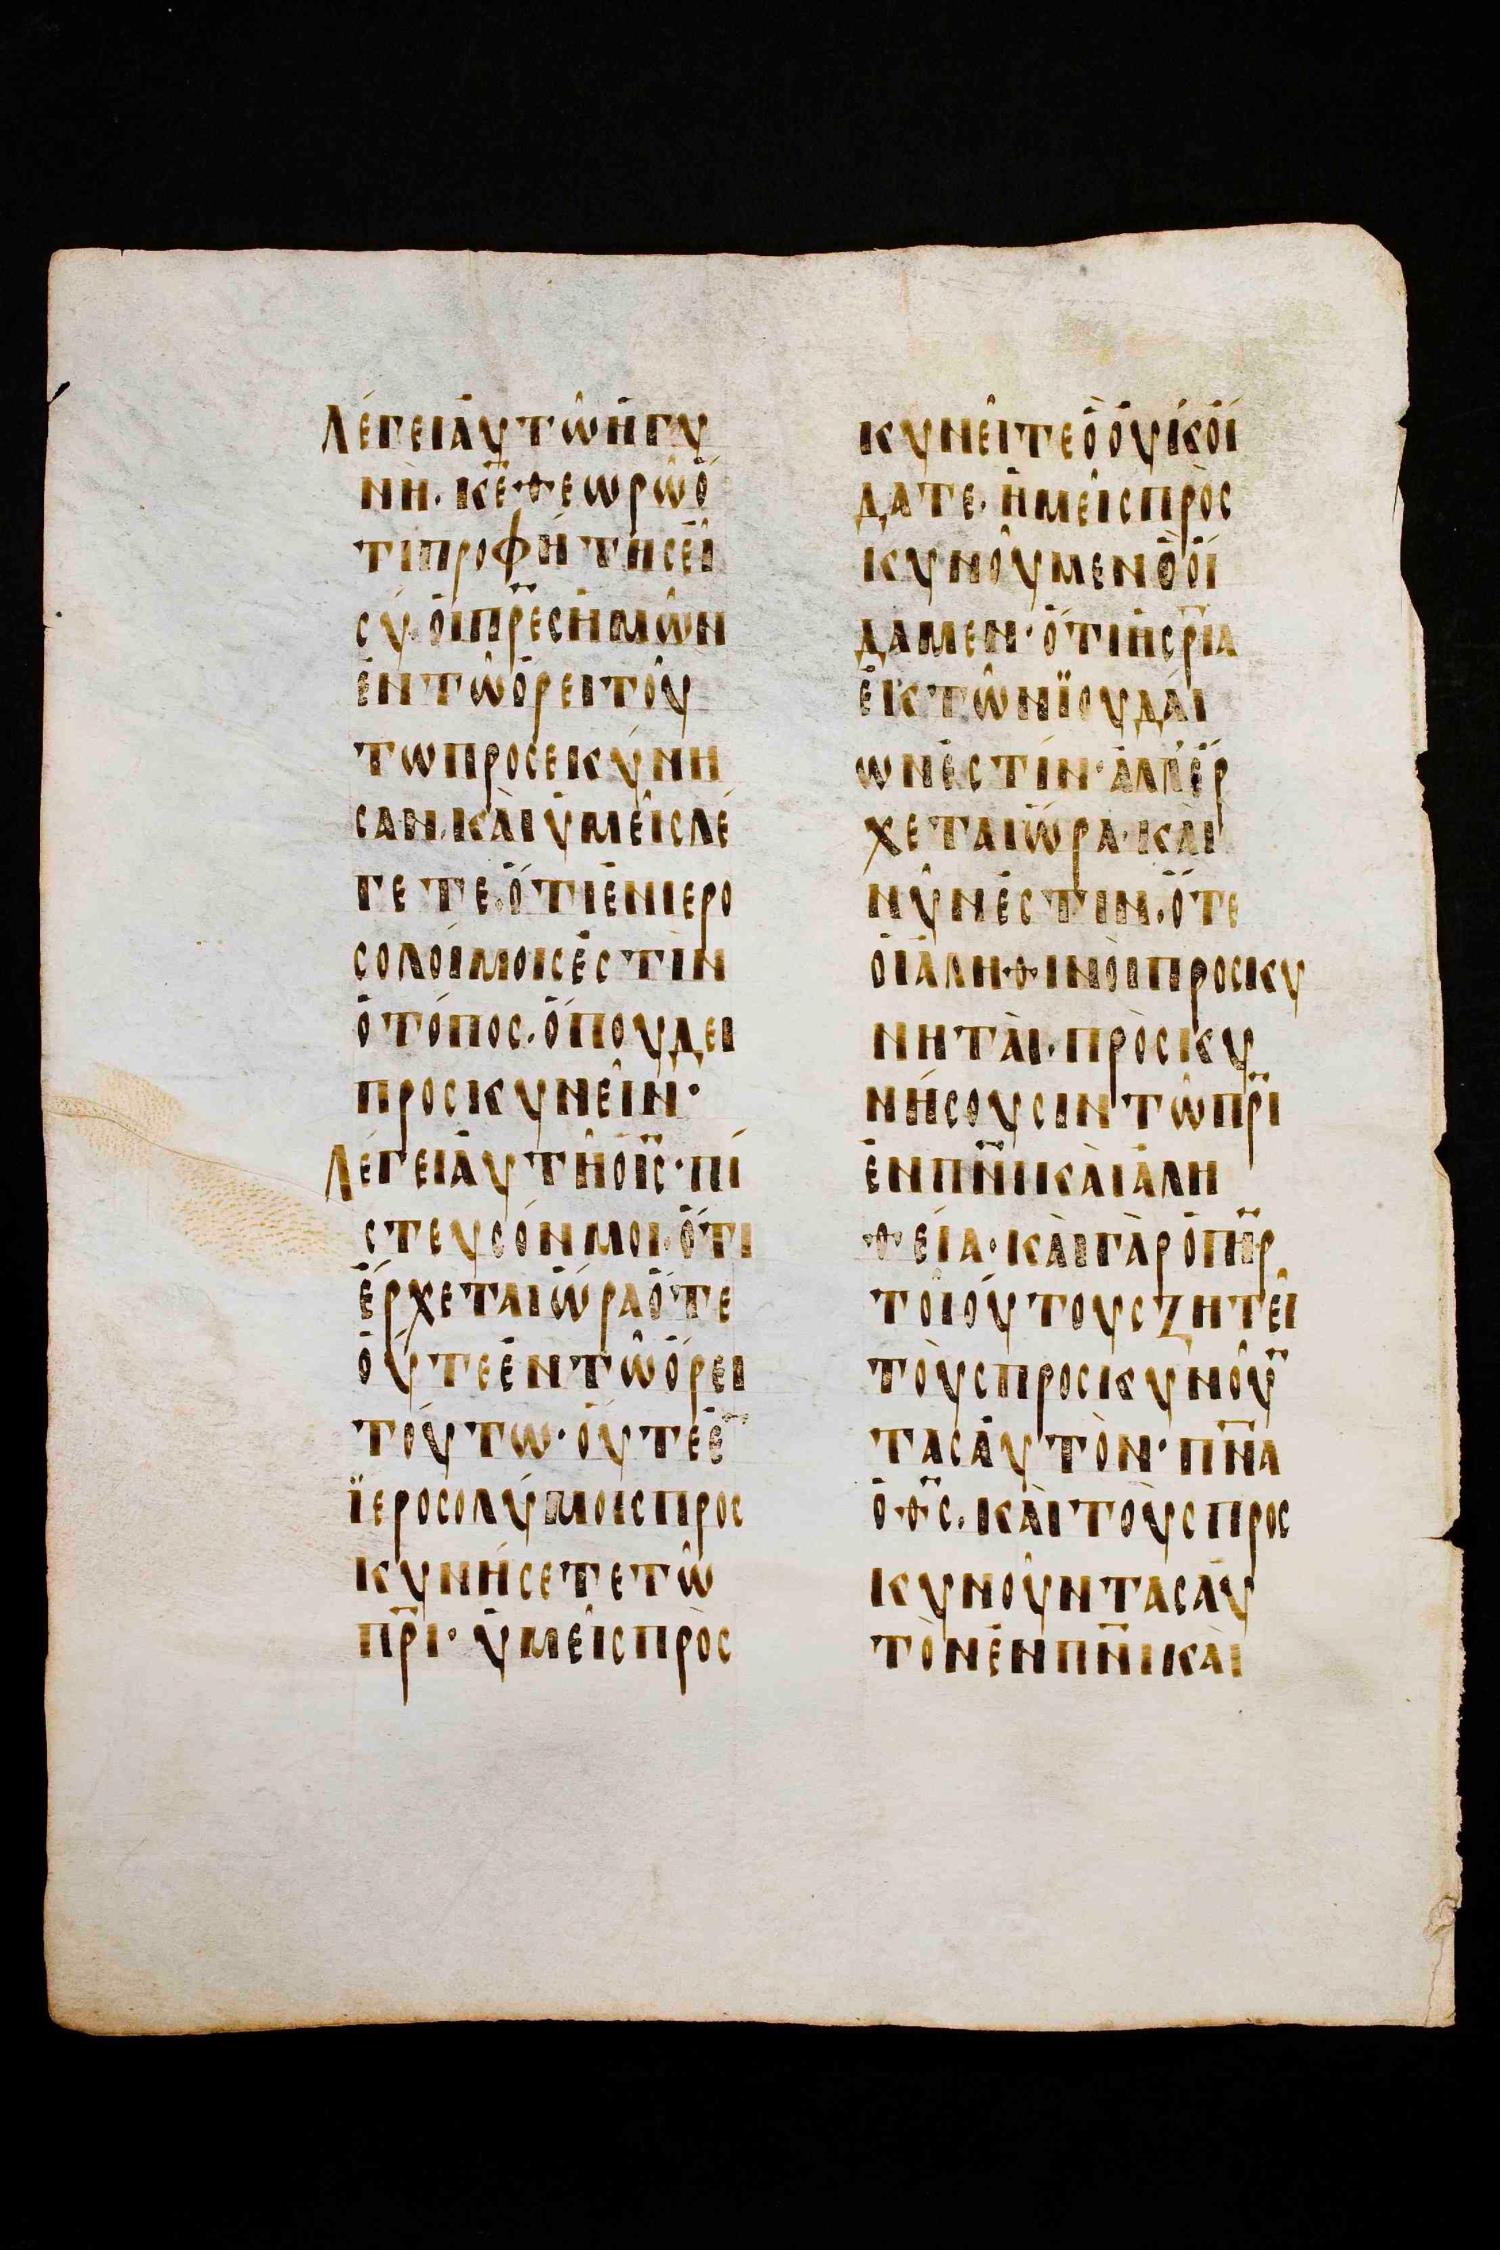 Λέγει ἀυτῶ ἡ γυ
νὴ. κ̅ε̅ θεωρῶ ὅ
τι προφήτης εἶ
σύ. ὁι π̅ρ̅ε̅ς ἡμῶν
ἐν τῶ ὄρει τού
τω προσεκύνη
σαν. κὰι ὑμεῖς λέ
γετε. ὅτι ἐν ιερο
σολοίμοις ἐστὶν
ὁ τόπος. ὅπου δει
προσκυνεῖν·
Λέγει ἀυτῆ ὁ ι̅ς̅· πί
στευσόν μοι. ὅτι
ἔρχεται ὥρα ὅτε
ὄυτε ἐν τῶ ὄρει
τούτω· ὄυτε ἐ̅
ϊεροσολύμοις προς
κυνήσετε τῶ
π̅ρ̅ι̅· ὑμεῖς πρὸς
κυνεῖτε ὃ ὀυκ ὄι
δατε. ἡμεῖς πρὸς
κυνοῦμεν ὃ ὄι
δαμεν· ὅτι ἡ σ̅ρ̅ι̅α
ἐκ τῶν ϊουδάι
ων ἐστίν· ἀλλ' ἔρ
χεται ὥρα· κὰι
νῦν ἐστιν. ὅτε
ὁι ἀληθινὸι προσκυ
νηταὶ. πρὸσκυ
νήσουσιν τῶ π̅ρ̅ι̅
ἐν π̅ν̅ι̅ κὰι ἀλη
θεία· κὰι γὰρ ὁ π̅η̅ρ̅
τοιούτους ζητεῖ
τοὺς προσκυνοῦ̅
τας ἀυτὸν· π̅ν̅α̅
ὁ θ̅ς̅. κὰι τοὺς προς
κυνοῦντας ἀυ
τὸν ἐν π̅ν̅ι̅ κὰι